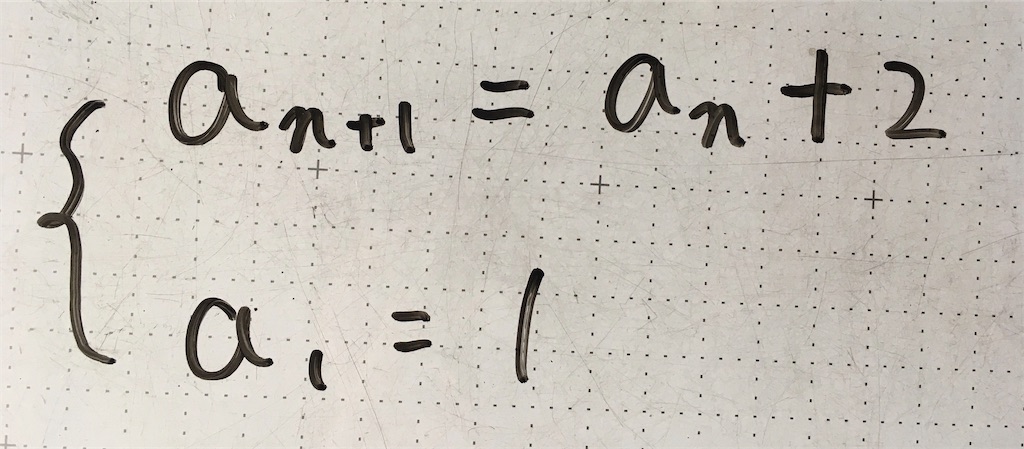 aₙ₊₁ = aₙ + 2
a₁ = 1